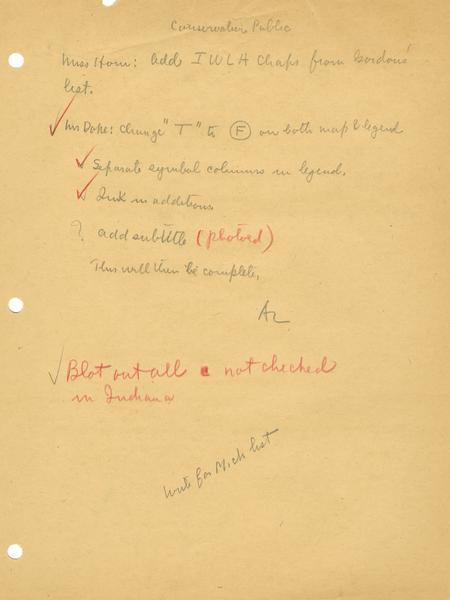 Conservation Public
Miss Horn: add IWLA Chaps from Gordon's
list.
Mr Doke: Change "T" to F on both map & legend
Separate symbol columns in legend.
Ink in additions
? add subtitle (photoed)
This will then be complete.
AL
Blot out all not checked
in Indiana
Write for Mich list